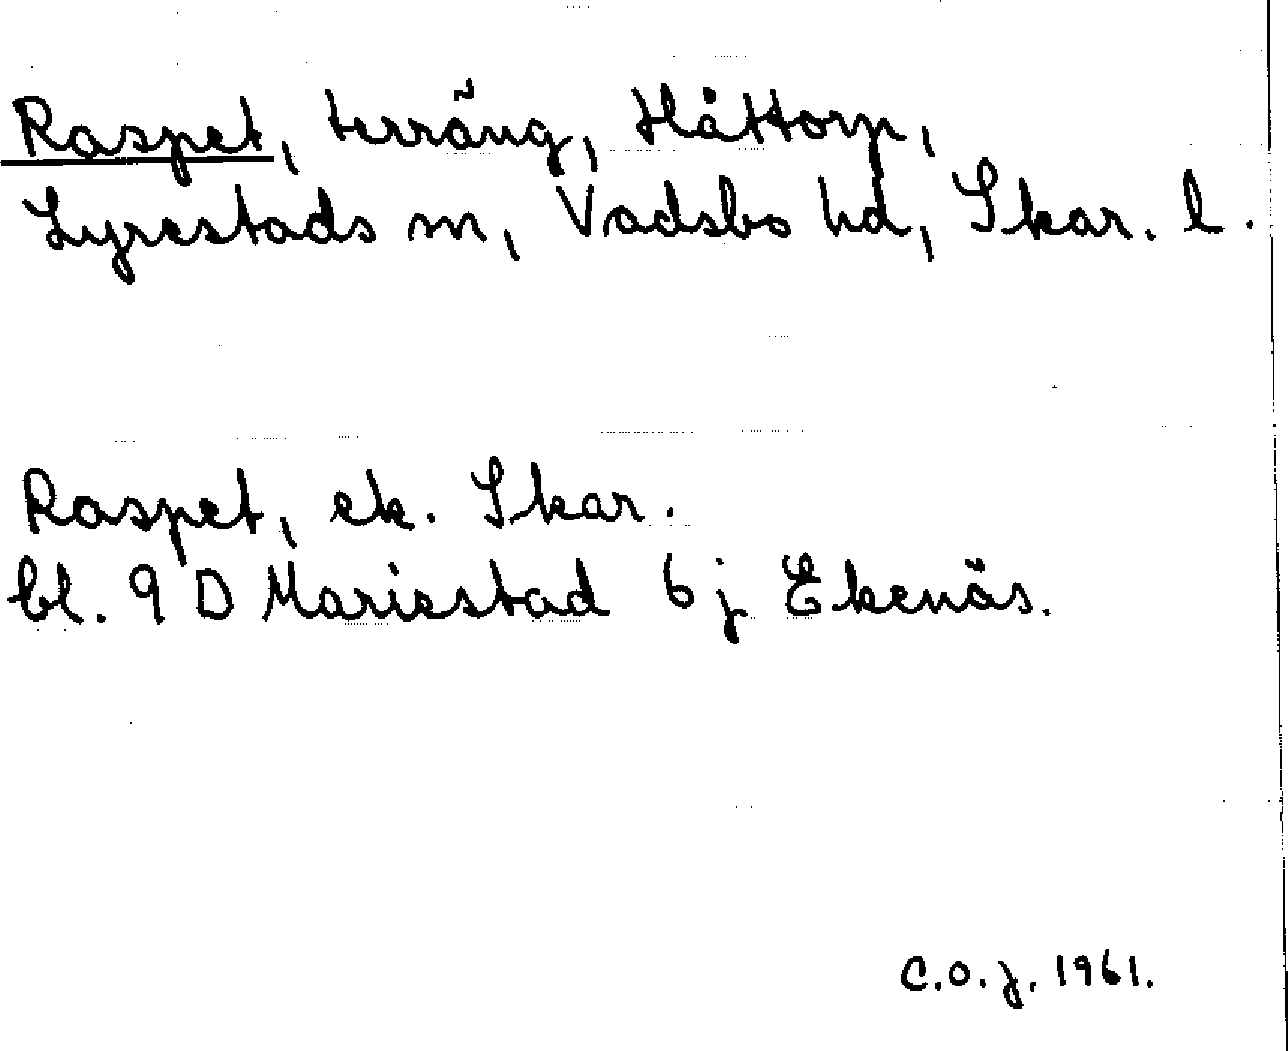 Raspet, terräng, Håttorp,
Lyrestads sn, Vadsbo hd, Skar. l.
Raspet, ek. Skar.
bl. 9 D Mariestad 6 j Ekenäs.
C.O.J. 1961.